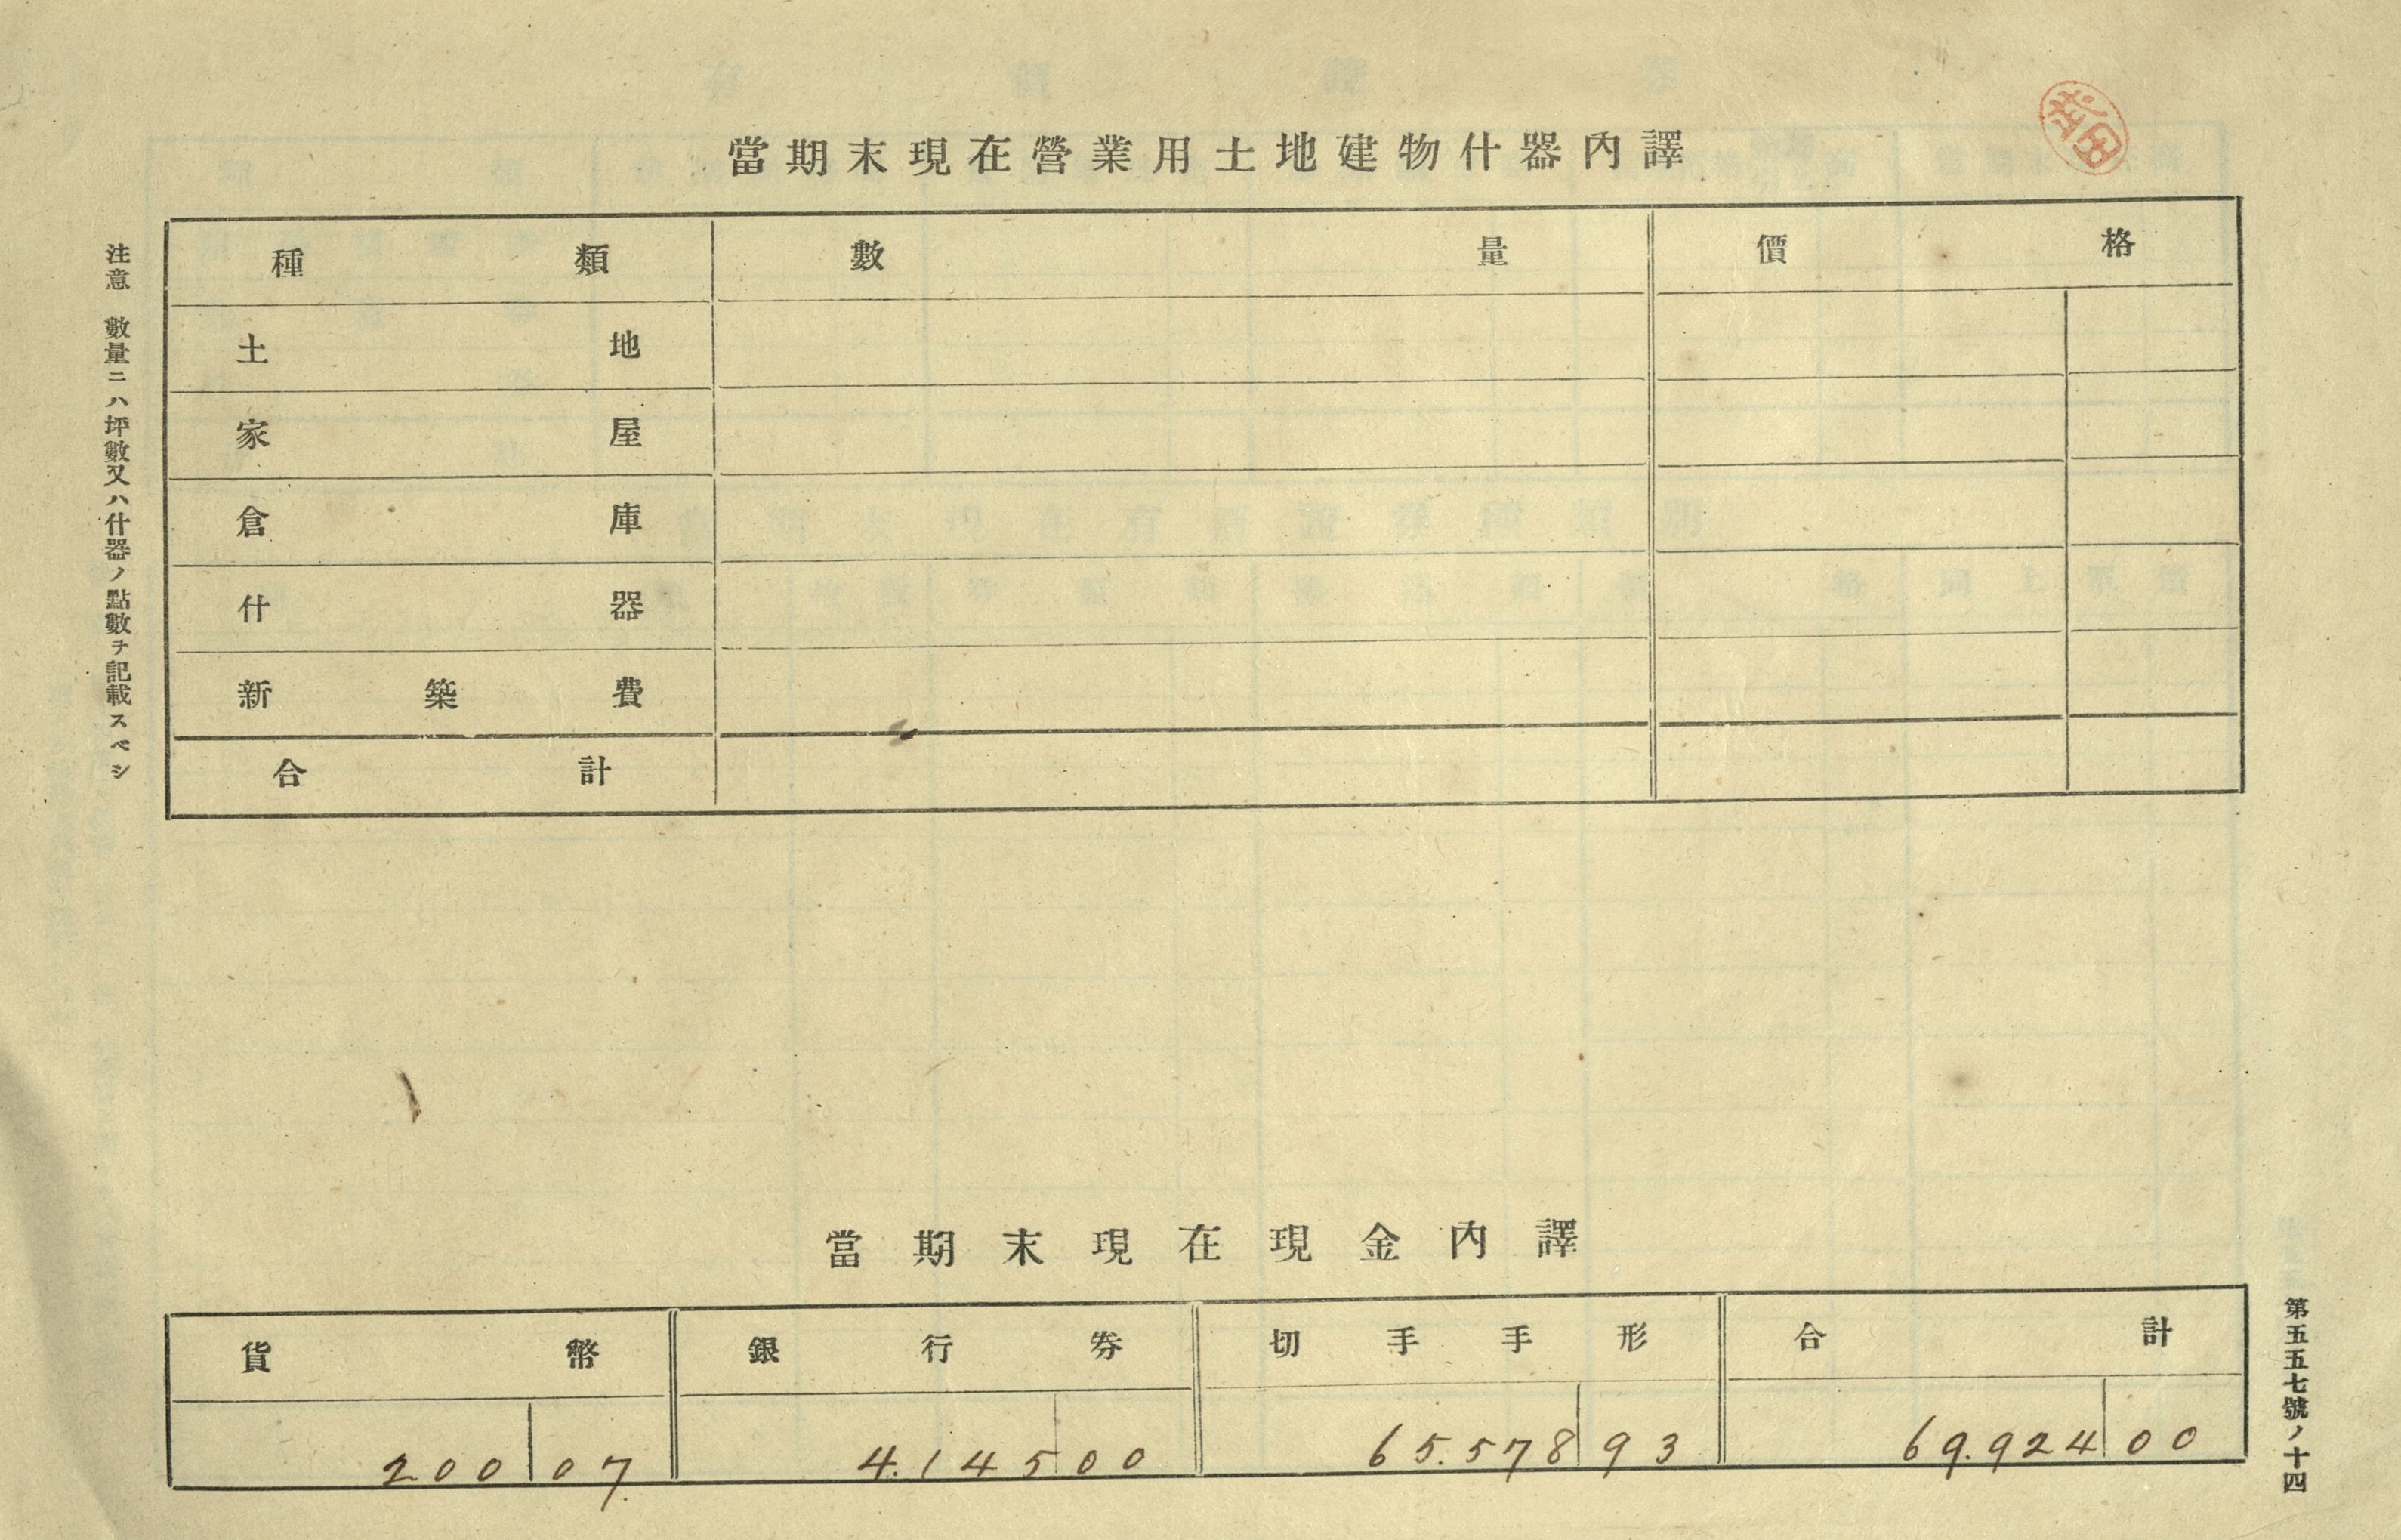 當期末現在營業用土地建物什器內譯
種類 數量 價格
土地
家屋
倉庫
什器
新築費
合計
注意 數量ニハ坪數又ハ什器ノ點數ヲ記載スベシ
當期末現在現金內譯
貨幣 銀行券 切手手形 合計
200 07 4.145 00 65.578 93 69.924 00
第五五七號ノ十四